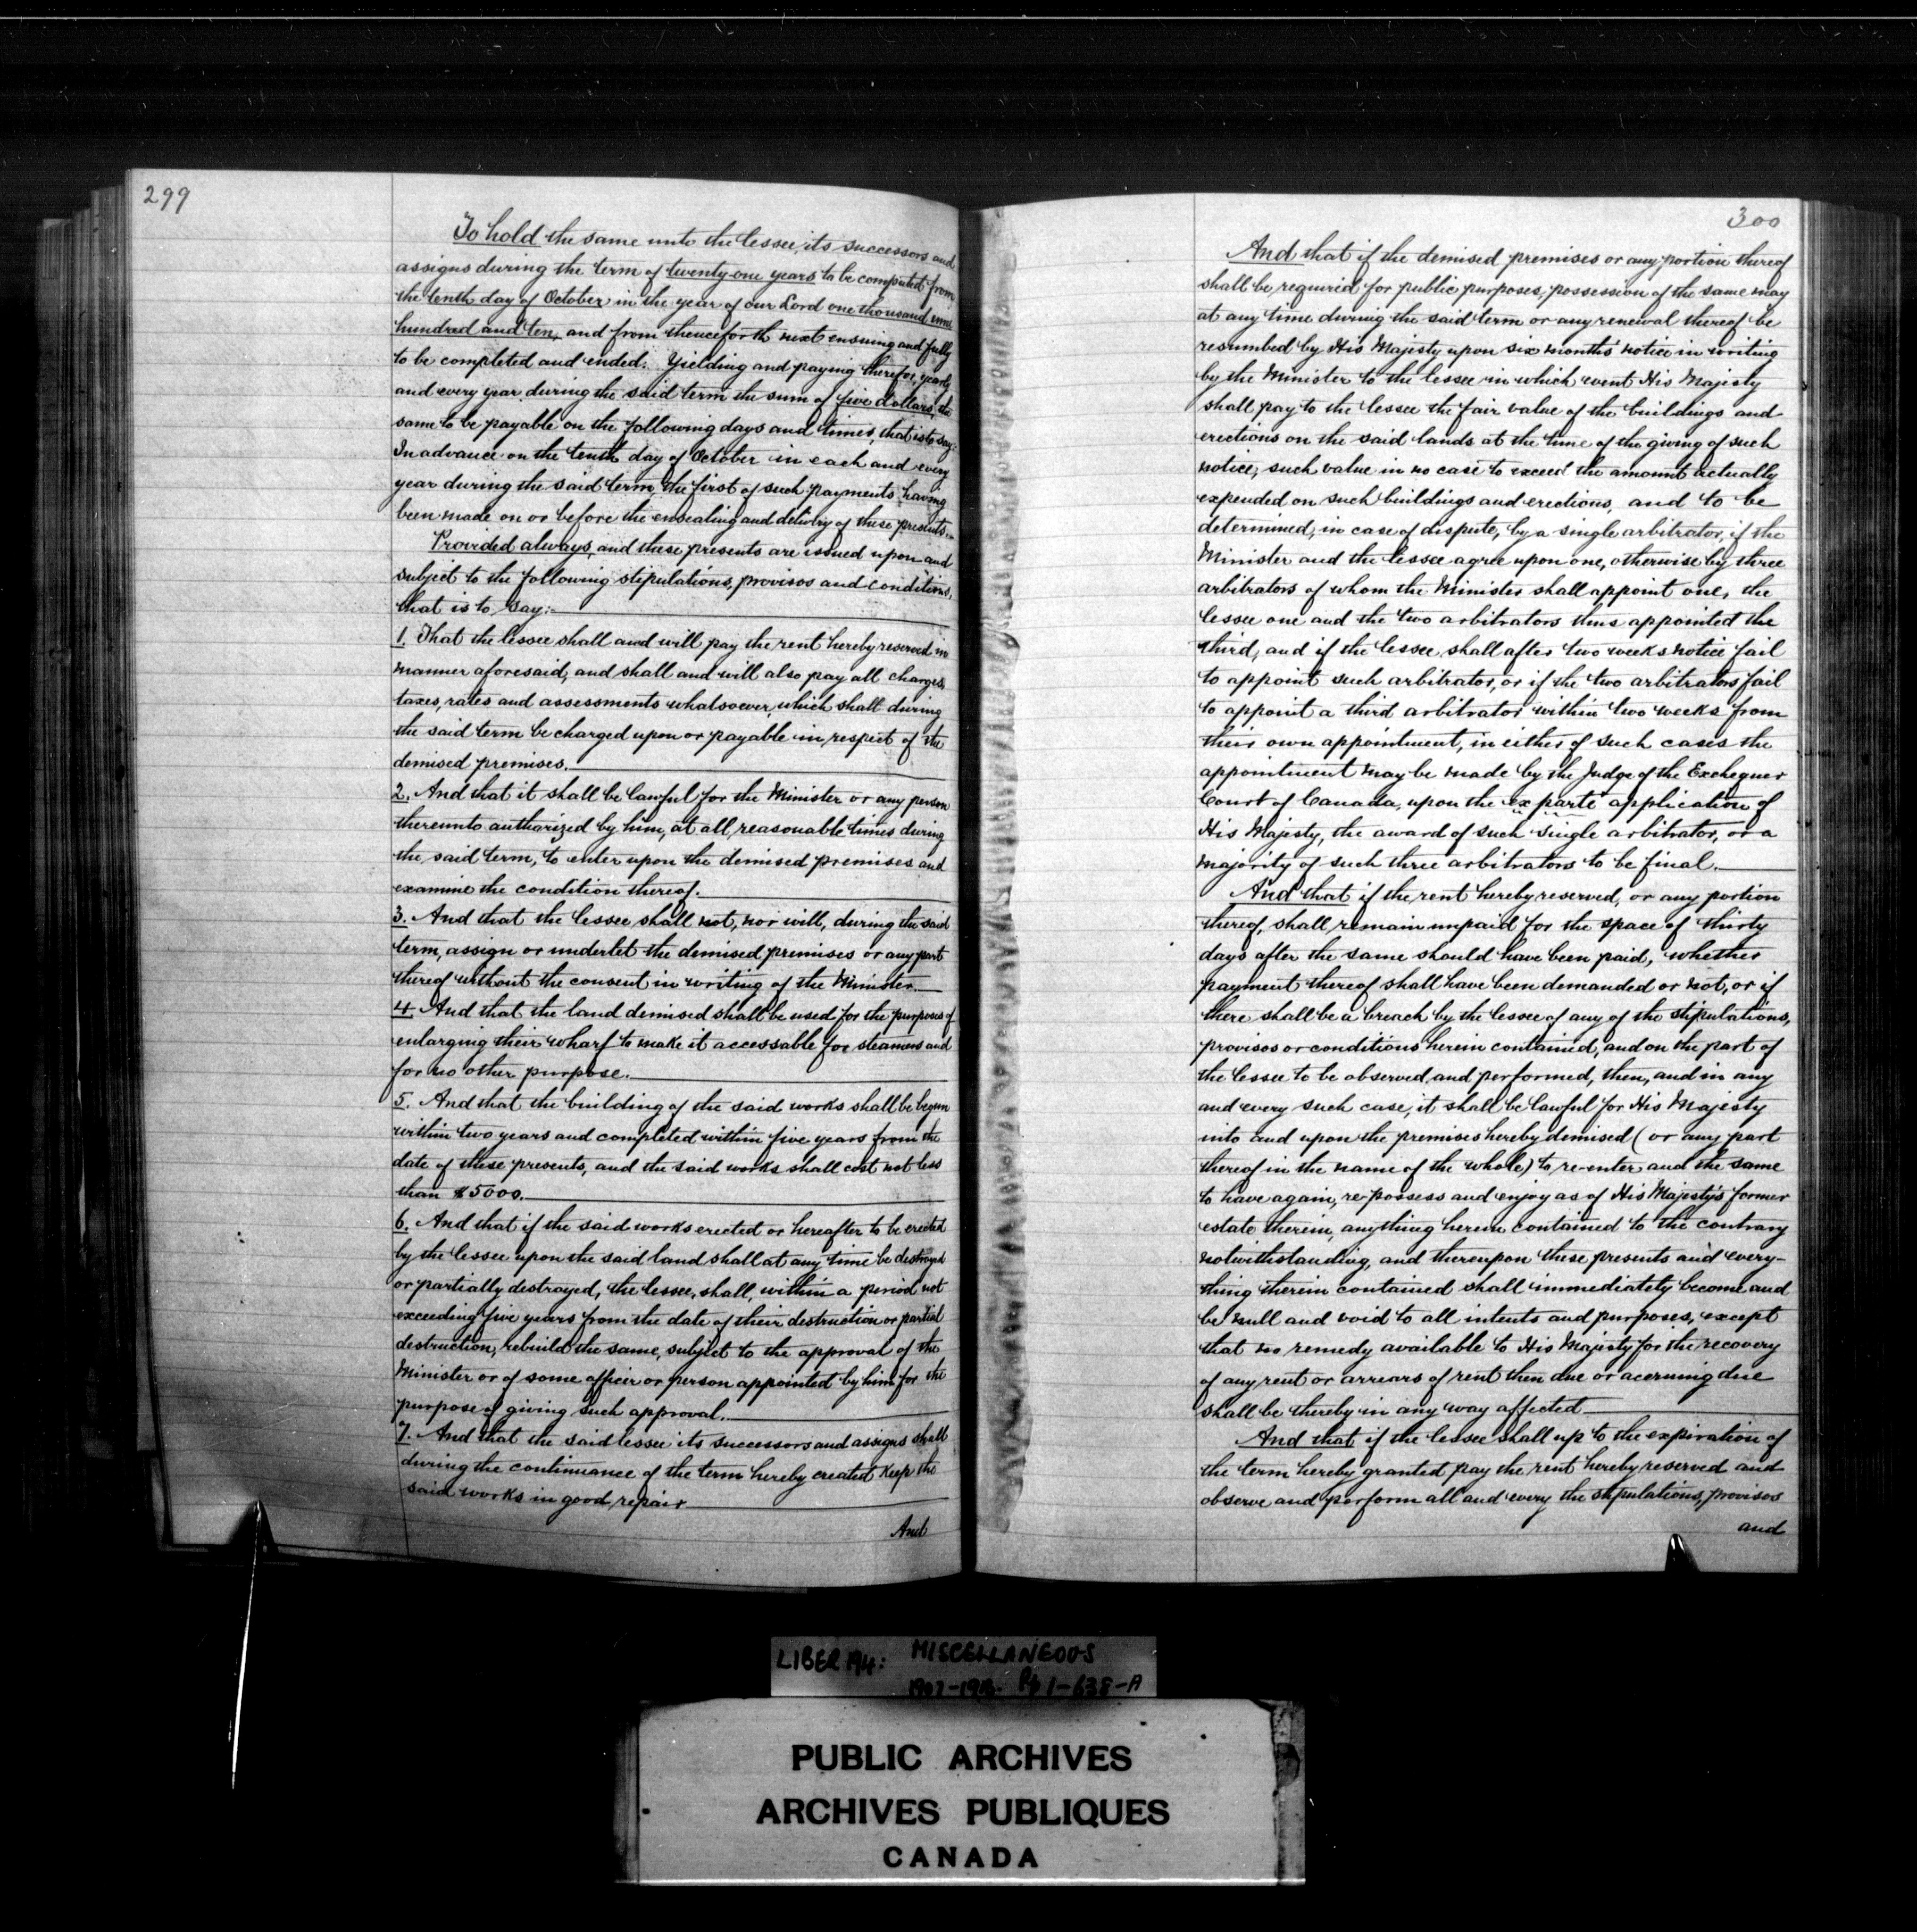 299
To hold the same unto the lessee, its successors and
assigns during the term of twenty-one years to be computed from
the tenth day of October in the year of our Lord one thousand nine
hundred and ten, and from thenceforth next ensuing and fully
to be completed and ended: Yielding and paying therefor, yearly
and every year during the said term the sum of five dollars, the
same to be payable on the following days and times, that is to say:
In advance on the tenth day of October in each and every
year during the said term, the first of such payments having
been made on or before the ensealing and delivery of these presents.
Provided always, and these presents are issued upon and
subject to the following stipulations, provisos and conditions,
that is to say:
1. That the lessee shall and will pay the rent hereby reserved in
manner aforesaid, and shall and will also pay all charges,
taxes, rates and assessments whatsoever, which shall during
the said term be charged upon or payable in respect of the
demised premises.
2. And that it shall be lawful for the Minister or any person
thereunto authorized by him, at all reasonable times during
the said term, to enter upon the demised premises and
examine the condition thereof.
3. And that the lessee shall not, nor will, during the said
term, assign or underlet the demised premises or any part
thereof without the consent in writing of the Minister.
4 And that the land demised shall be used for the purposes of
enlarging their wharf to make it accessable for steamers and
for no other purpose.
5. And that the building of the said works shall be begun
within two years and completed within five years from the
date of these presents, and the said works shall cost not less
than $5000.
6. And that if the said works erected or hereafter to be erected
by the lessee upon the said land shall at any time be destroyed
or partially destroyed, the lessee, shall, within a period not
exceeding five years from the date of their destruction or partial
destruction, rebuild the same, subject to the approval of the
Minister or of some officer or person appointed by him for the
purpose of giving such approval.
7. And that the said lessee its successors and assigns shall
during the continuance of the term hereby created keep the
said works in good repair
And
300
And that if the demised premises or any portion thereof
shall be required for public purposes, possession of the same may
at any time during the said term or any renewal thereof be
resumbed by His Majesty upon six months' notice in writing
by the Minister to the lessee in which event His Majesty
shall pay to the lessee the fair value of the buildings and
erections on the said lands at the time of the giving of such
notice, such value in no case to exceed the amount actually
expended on such buildings and erections, and to be
determined, in case of dispute, by a single arbitrator, if the
Minister and the lessee agree upon one, otherwise by three
arbitrators of whom the Minister shall appoint one, the
lessee one and the two arbitrators thus appointed the
third, and if the lessee shall after two weeks notice fail
to appoint such arbitrator, or if the two arbitrators fail
to appoint a third arbitrator within two weeks from
their own appointment, in either of such cases the
appointment may be made by the Judge of the Exchequer
Court of Canada, upon the ex parte application of
His Majesty, the award of such single arbitrator, or a
majority of such three arbitrators to be final.
And that if the rent hereby reserved, or any portion
thereof, shall remain unpaid for the space of thirty
days after the same should have been paid, whether
payment thereof shall have been demanded or not, or if
there shall be a breach by the lessee of any of the stipulations,
provisos or conditions herein contained, and on the part of
the lessee to be observed and performed, then, and in any
and every such case, it shall be lawful for His Majesty
into and upon the premises hereby demised (or any part
thereof in the name of the whole) to re-enter and the same
to have again, re-possess and enjoy as of His Majesty's former
estate therein, anything herein contained to the contrary
notwithstanding, and thereupon these presents and every-
thing therein contained shall immediately become and
be null and void to all intents and purposes, except
that no remedy available to His Majesty for the recovery
of any rent or arrears of rent then due or accruing due
shall be thereby in any way affected
And that if the lessee shall up to the expiration of
the term hereby granted pay the rent hereby reserved and
observe and perform all and every the stipulations, provisos
and
LIBER 194: MISCELLANEOUS
1907-1913. Pp 1-638-A
PUBLIC ARCHIVES
ARCHIVES PUBLIQUES
CANADA